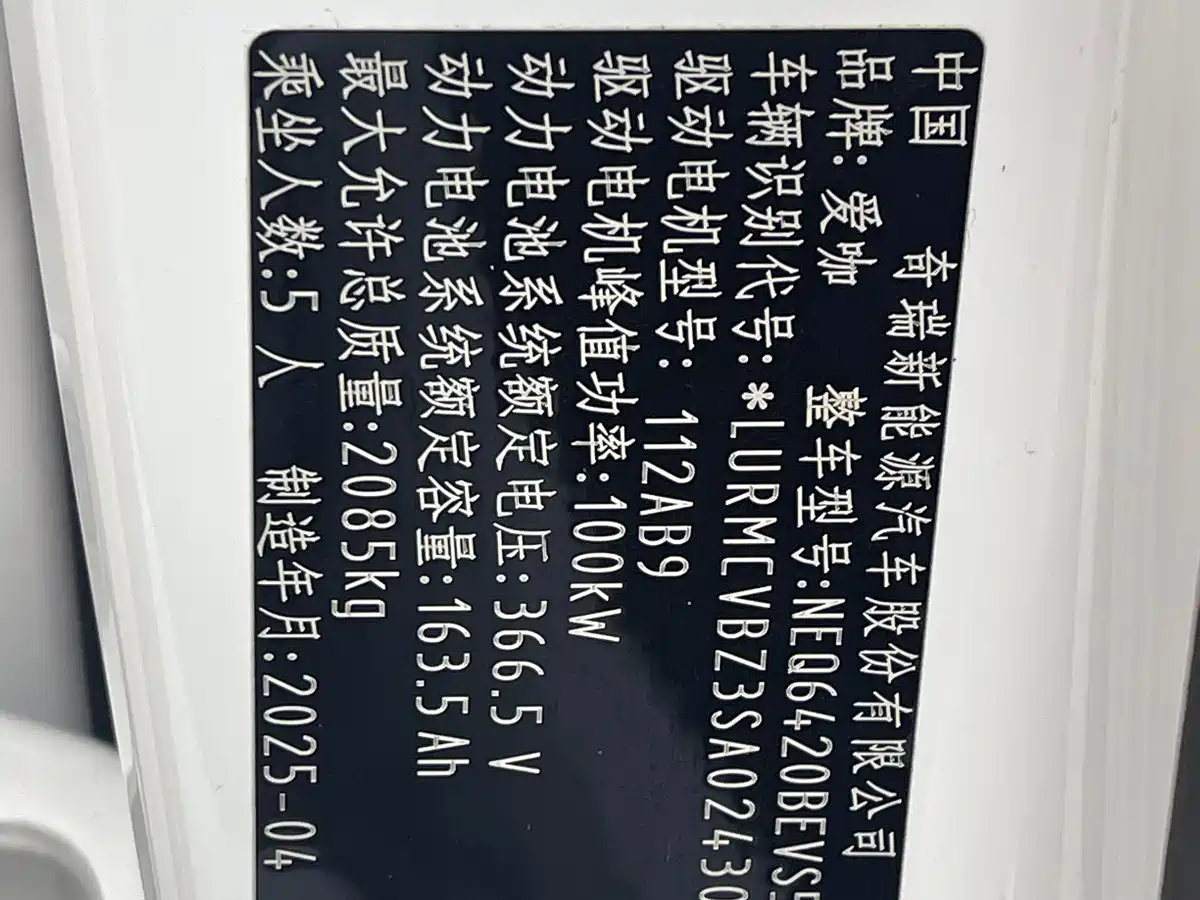 中国 奇瑞新能源汽车股份有限公司
品牌: 爱咖 整车型号:NEQ6420BEVS
车辆识别代号: *LURMCVBZ3SA02430
驱动电机型号: 112AB9
驱动电机峰值功率:100kW
动力电池系统额定电压:366.5 V
动力电池系统额定容量:163.5Ah
最大允许总质量:2085kg
乘坐人数:5 人 制造年月:2025-04